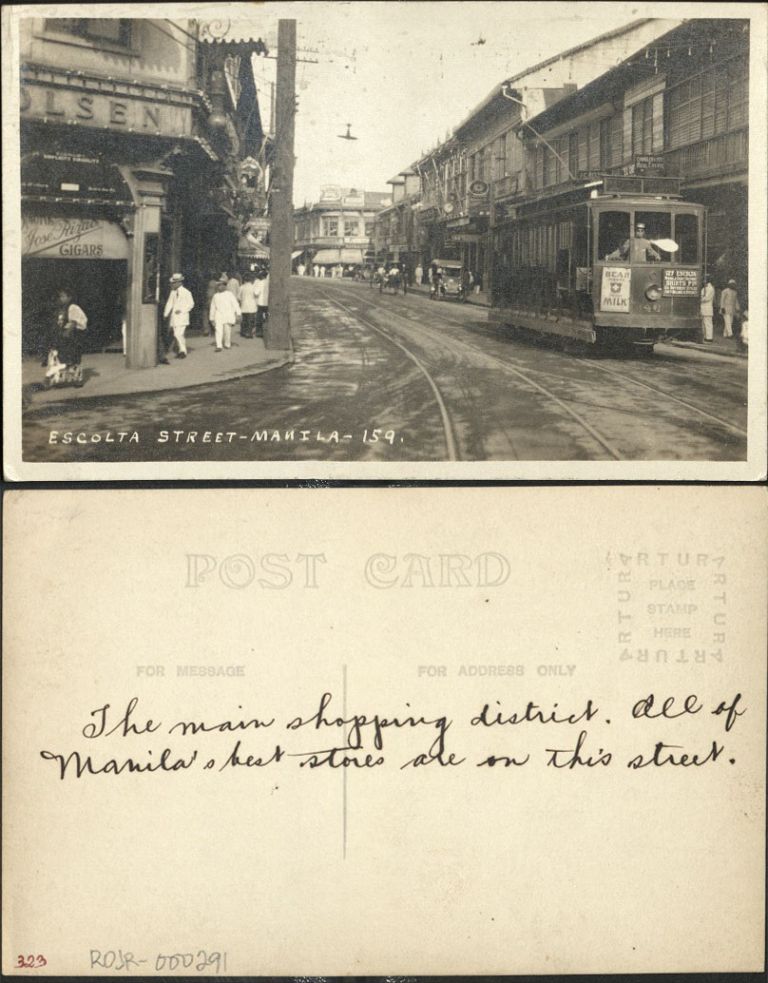 OLSEN
Jose Rizal
CIGARS
BEAR
MILK
ESCOLTA STREET-MANILA-159.
POST CARD
ARTURA
PLACE
STAMP
HERE
ARTURA
ARTURA
ARTURA
FOR MESSAGE
FOR ADDRESS ONLY
The main shopping district. All of
Manila's best stores are on this street.
323
ROJR-000291